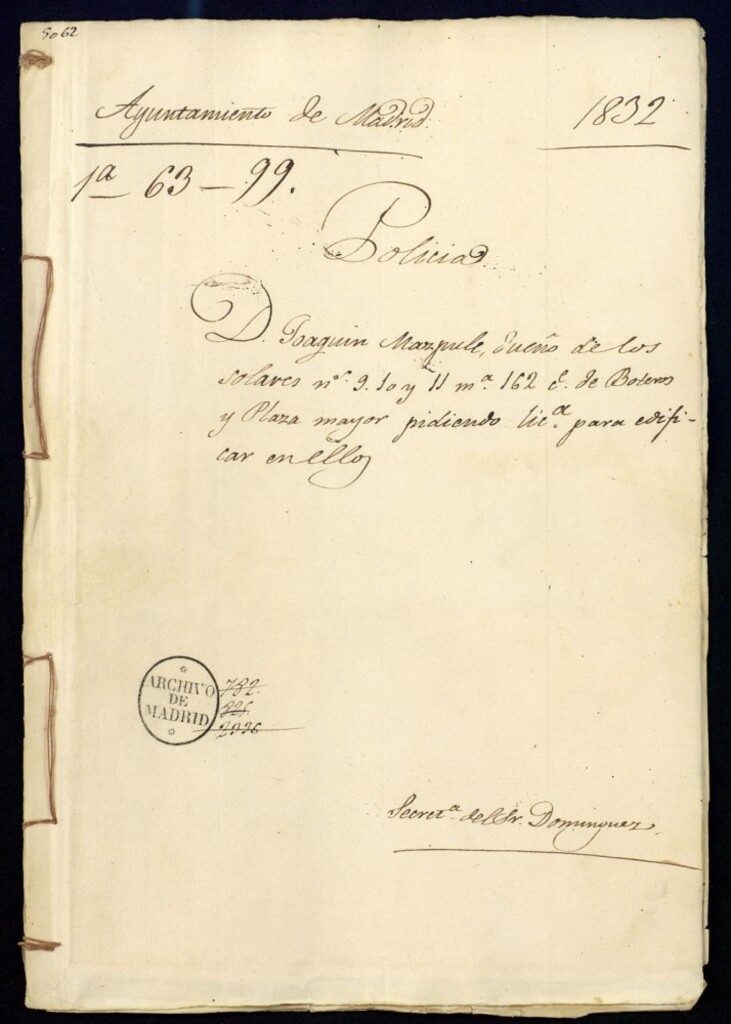 5062
Ayuntamiento de Madrid. 1832
1ª 63-99.
Policia
D. Joaquin Mazpule, dueño de los
solares nºˢ 9. 10 y 11 mª. 162 c. de Boteros
y Plaza mayor pidiendo licª. para edifi-
car en ellos
ARCHIVO
DE
MADRID
782.
Secretª. del Sr. Dominguez.